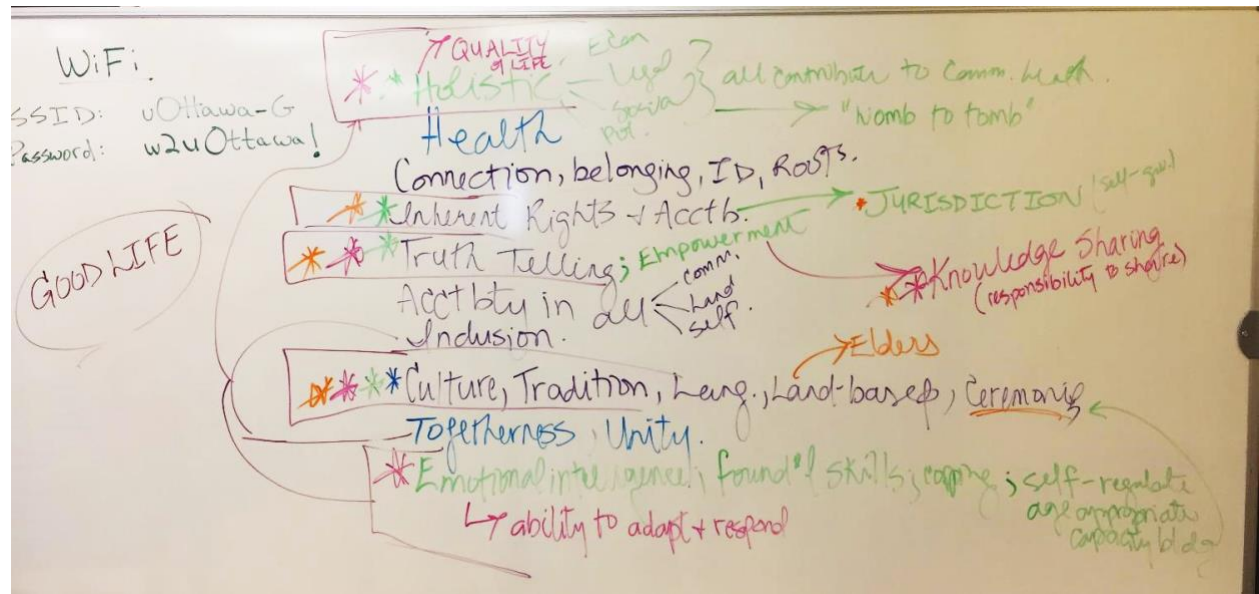 WiFi.
SSID: uOttawa-G
Password: w2uOttawa!
GOOD LIFE
QUALITY
of LIFE
** Holistic
Econ
Legal
Social
Pol.
all contribute to Comm. health.
"Womb to tomb"
Health
Connection, belonging, ID, Roots.
** Inherent Rights + Acctb.
* JURISDICTION (self-gov)
*** Truth Telling; Empowerment
** Knowledge Sharing
(responsibility to share)
Acctbty in all
comm.
Land
self.
Inclusion.
Elders
**** Culture, Tradition, Lang., Land-based, Ceremonies
Togetherness, Unity.
* Emotional intelligence; found'l skills; copping; self-regulate
age appropriate
capacity bldg
ability to adapt + respond